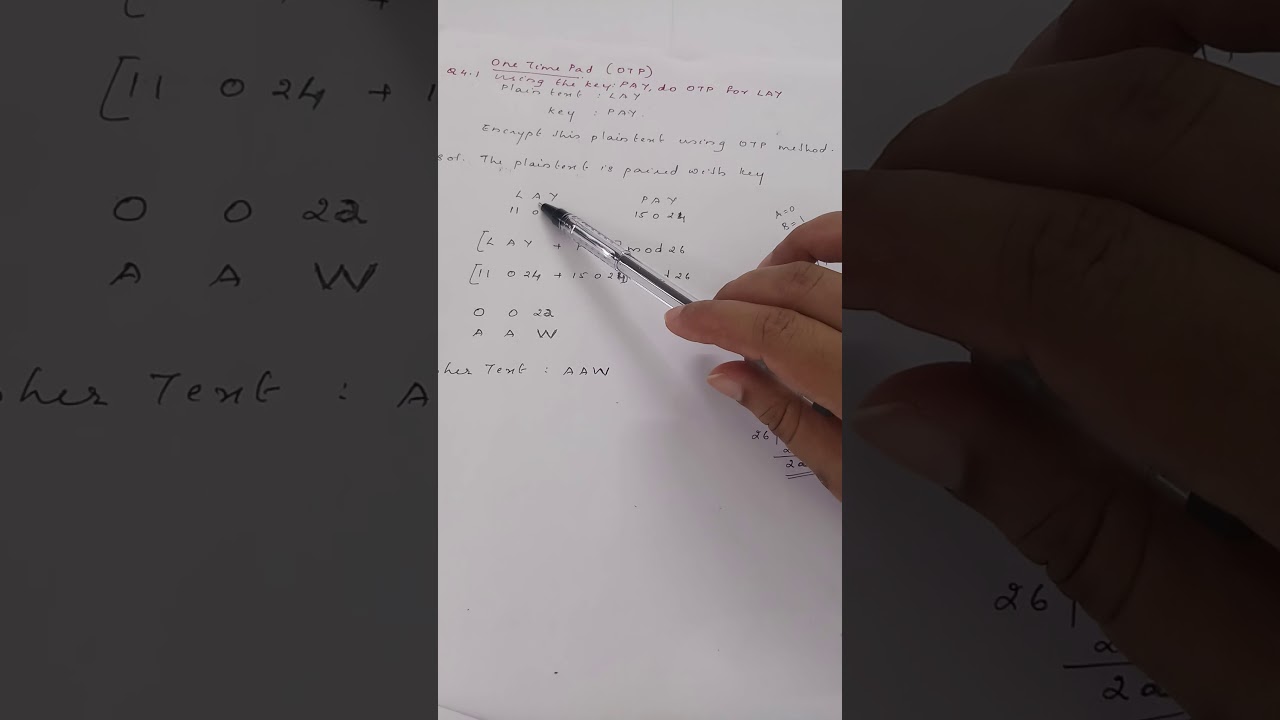 One Time Pad (OTP)
Q4.1 Using the key: PAY, do OTP for LAY
Plain text : LAY
key : PAY.
Encrypt this plaintext using OTP method.
Sol. The plaintext is paired with key
L A Y P A Y
11 0 15 0 24
A=0
B=1
[L A Y + mod 26
[11 0 24 + 15 0 24 26
0 0 22
A A W
her Text : AAW
26